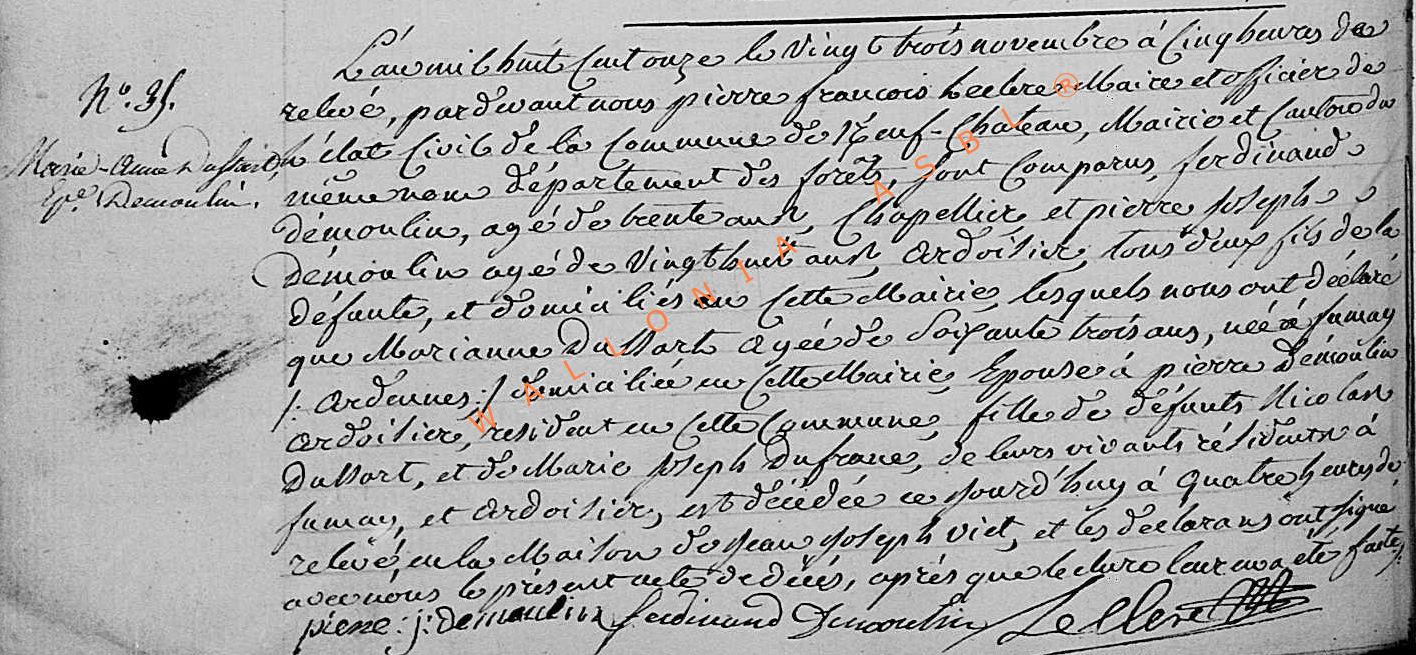 N.º 35.
Marie-Anne Dussart,
Ep.e Demoulin.
L'an mil huit Cent onze le Vingt trois novembre à Cinq heures de
relevé, pardevant nous pierre francois Leclere Maire et officier de
l'état Civil de la Commune de Neuf-Chateau, Mairie et Canton du
même nom département des forêts, sont Comparus, ferdinand
démoulin, agé de trente ans, Chapellier, et pierre Joseph
démoulin agé de Vingthuit ans, Ardoisier, tous deux fils de la
défunte, et domiciliés en Cette Mairie, lesquels nous ont déclaré
que Marianne Dussart agée de Soixante trois ans, née à fumay
/: Ardennes :/ domiciliée en Cette Mairie, Epouse à pierre Démoulin
ardoisier, résident en Cette Commune, fille de défunts Nicolas
Dussart, et de Marie Joseph Dufrane, de leurs vivants résidents à
fumay, et Ardoisier, est décédée ce jourd'huy à quatre heures de
relevé en la Maison de Jean Joseph Viet, et les déclarans ont signé
avec nous le présent acte de décès, après que lecture leur en a été faite,
pierre : j : demoulin ferdinand Demoulin Leclere
WALLONIA ASBL ®